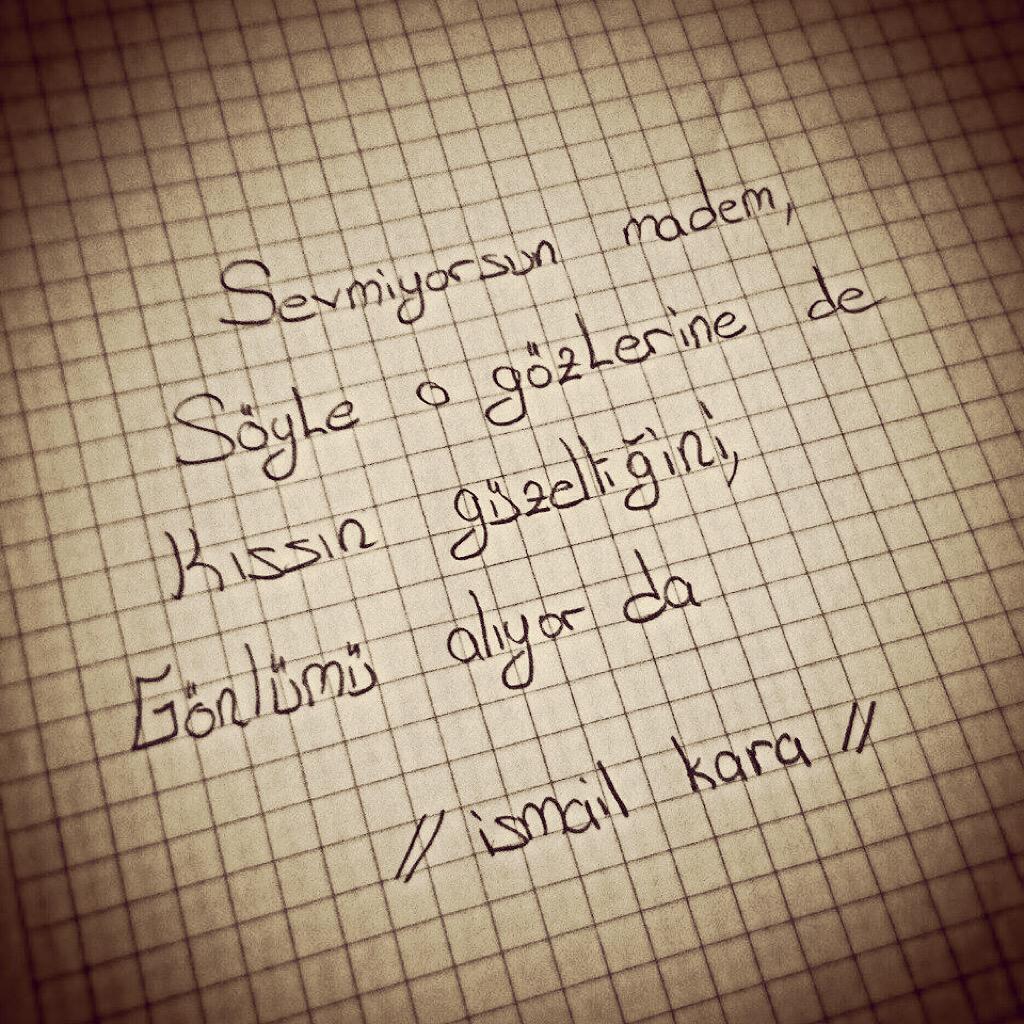 Sevmiyorsun madem,
Söyle o gözlerine de
Kıssın güzelliğini,
Gönlümü alıyor da
// ismail kara //